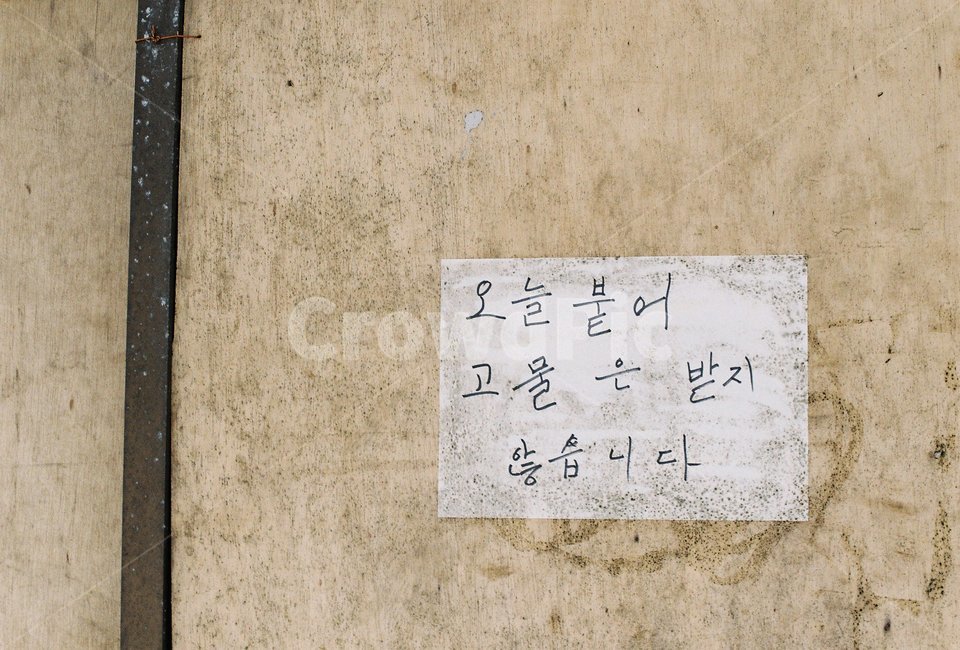 오늘 붙어
고물 은 받지
않습니다
CrowdPic